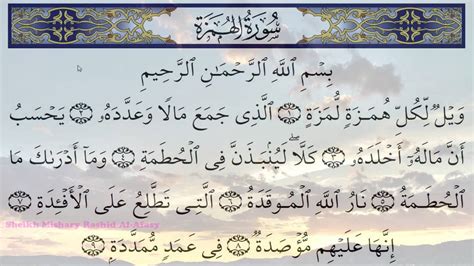 سُورَةُ الهُمَزَةِ
بِسْمِ ٱللَّهِ ٱلرَّحْمَـٰنِ ٱلرَّحِيمِ
وَيْلٌ لِّكُلِّ هُمَزَةٍ لُّمَزَةٍ ١ ٱلَّذِى جَمَعَ مَالًا وَعَدَّدَهُۥ ٢ يَحْسَبُ
أَنَّ مَالَهُۥٓ أَخْلَدَهُۥ ٣ كَلَّا ۖ لَيُنۢبَذَنَّ فِى ٱلْحُطَمَةِ ٤ وَمَآ أَدْرَىٰكَ مَا
ٱلْحُطَمَةُ ٥ نَارُ ٱللَّهِ ٱلْمُوقَدَةُ ٦ ٱلَّتِى تَطَّلِعُ عَلَى ٱلْأَفْـِٔدَةِ ٧
Sheikh Mishary Rashid Al-Afasy
إِنَّهَا عَلَيْهِم مُّؤْصَدَةٌ ٨ فِى عَمَدٍ مُّمَدَّدَةٍۭ ٩